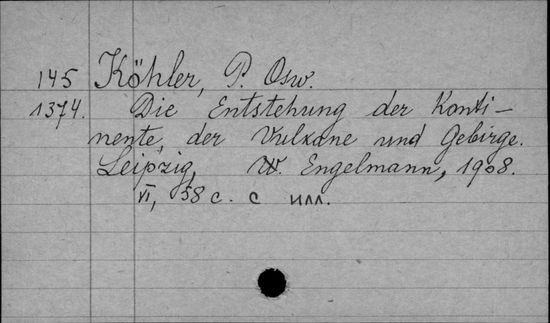 145 Köhler, P. Osw.
1374. Die Entstehung der Konti-
nente, der Vulkane und Gebirge.
Leipzig, W. Engelmann, 1908.
VI, 58 c. с илл.